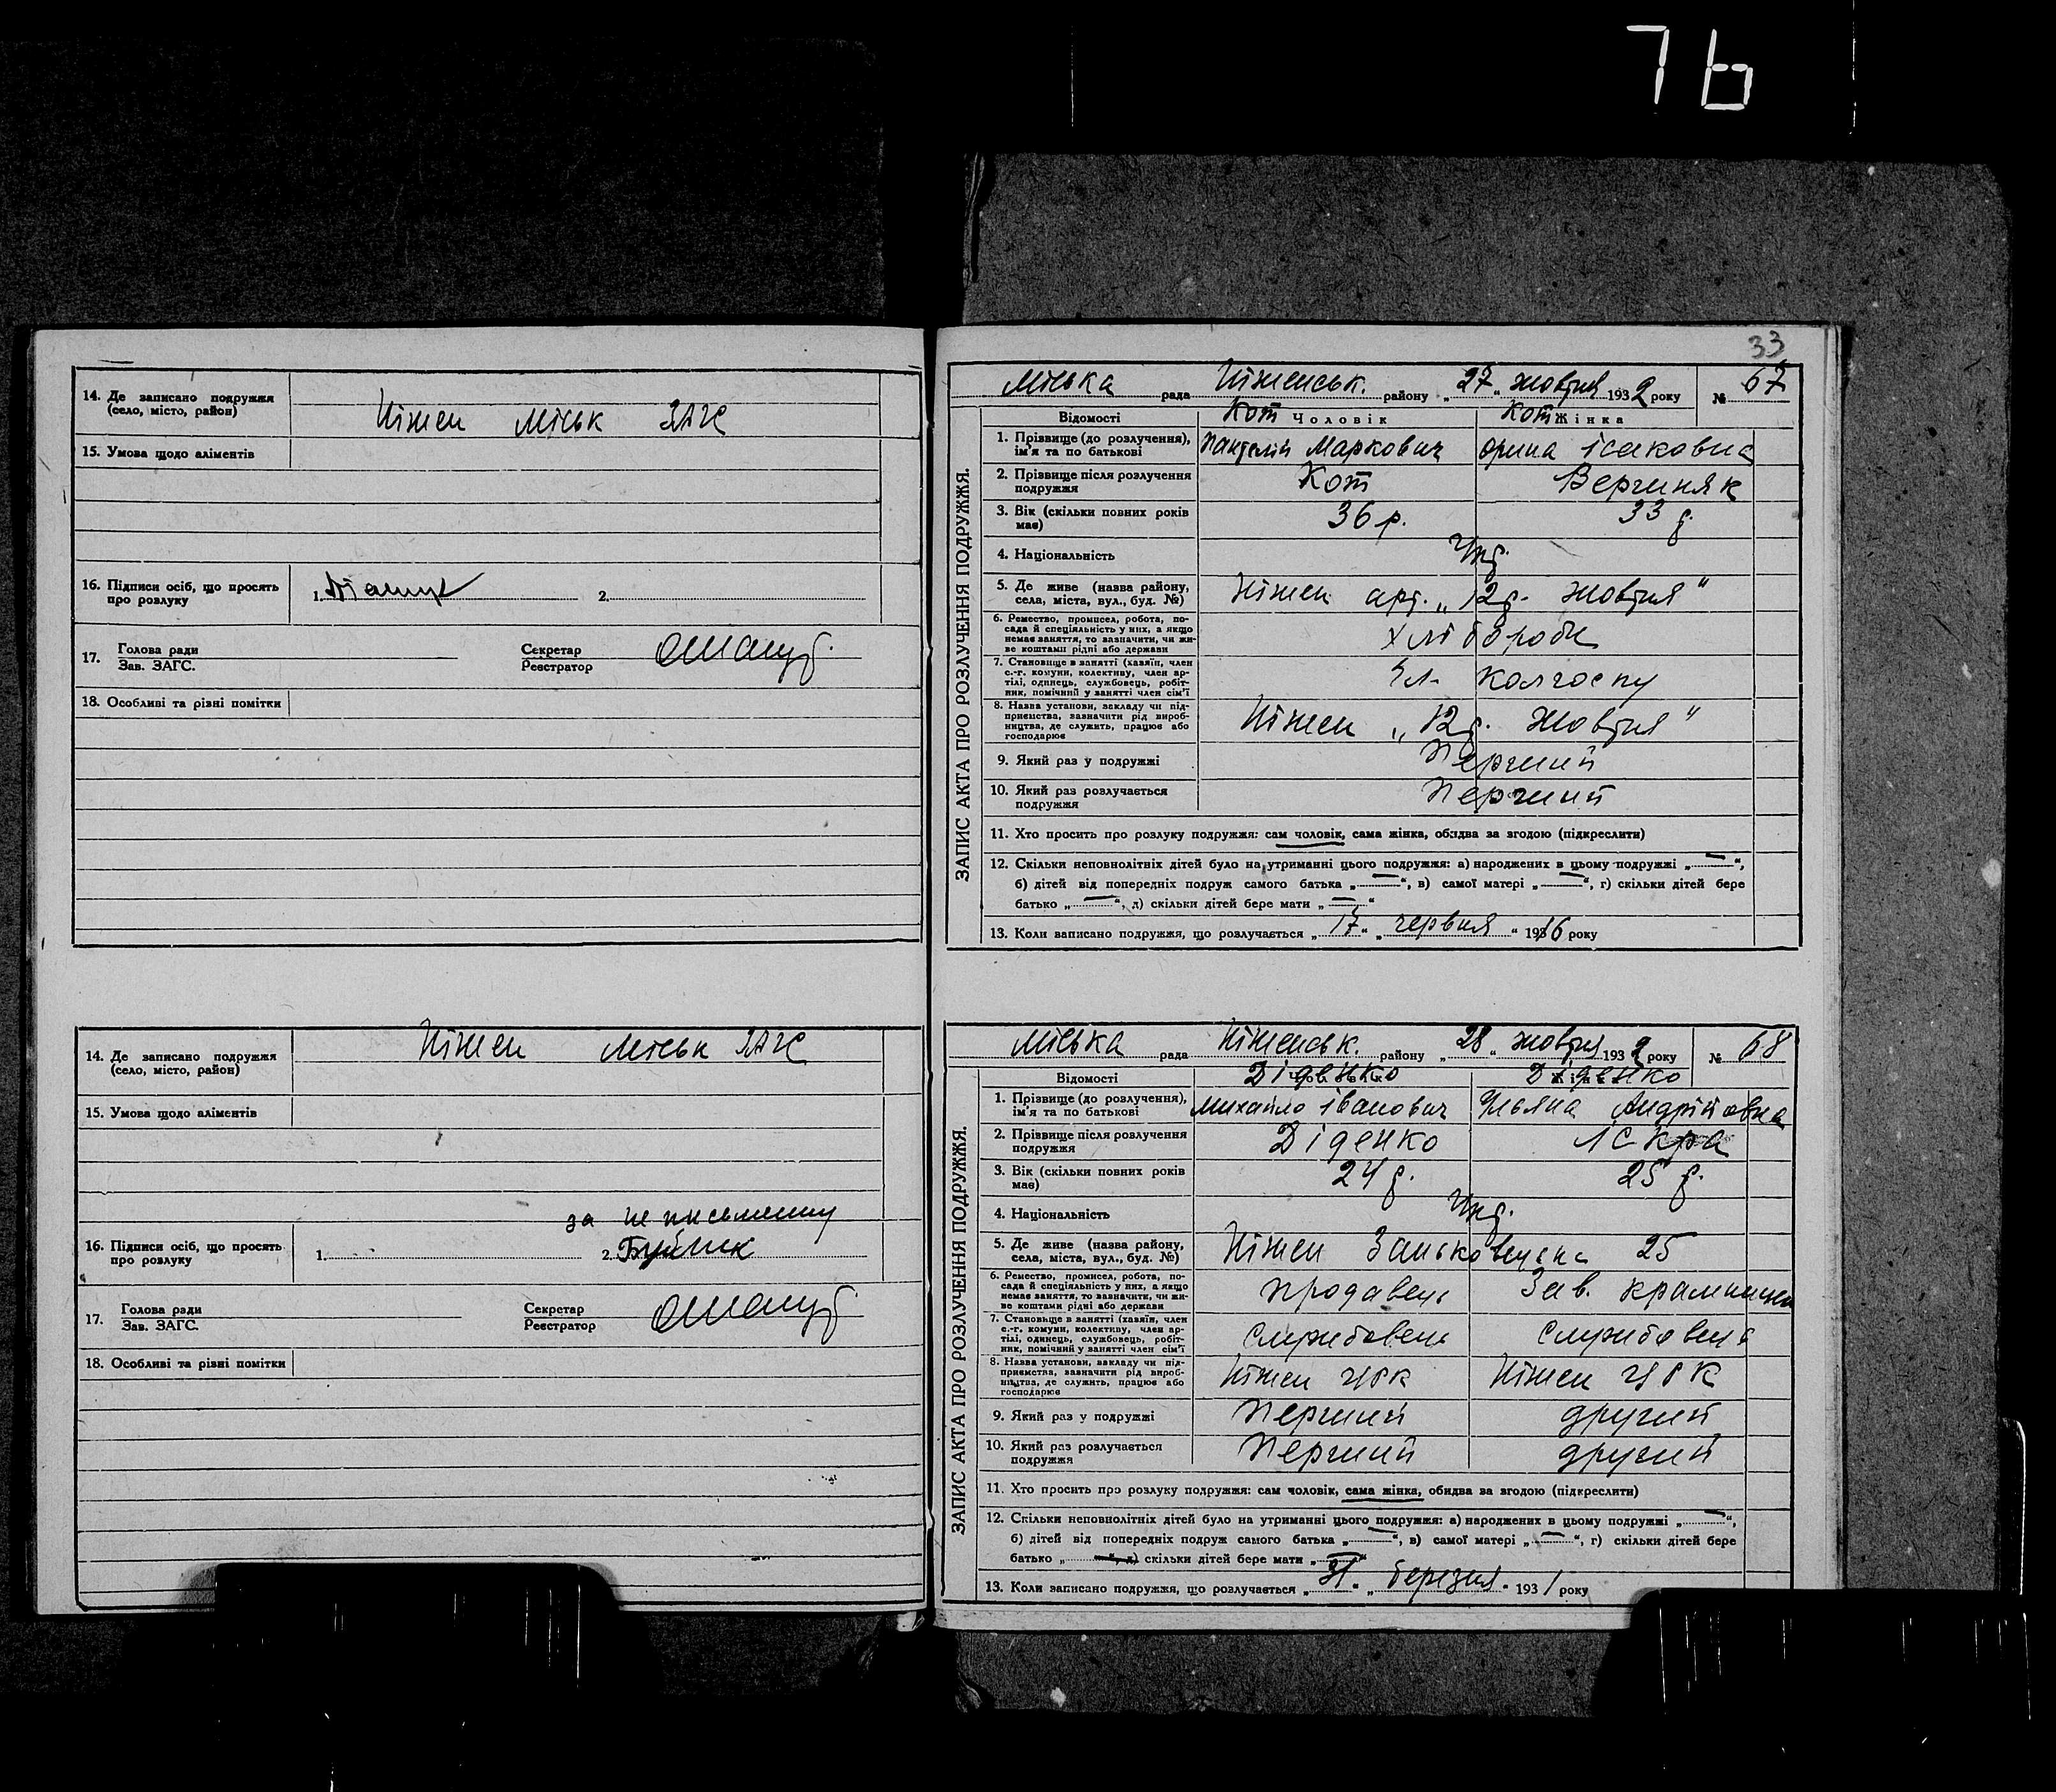 76
14. Де записано подружжя
(село, місто, район)
Ніжен міськ ЗАГС
15. Умова щодо аліментів
16. Підписи осіб, що просять
про розлуку
1.
2.
17.
Голова ради
Зав. ЗАГС.
Секретар
Реєстратор
18. Особливі та різні помітки
14. Де записано подружжя
(село, місто, район)
Ніжен міськ ЗАГС
15. Умова щодо аліментів
за неписьменну
16. Підписи осіб, що просять
про розлуку
1.
2.
17.
Голова ради
Зав. ЗАГС.
Секретар
Реєстратор
18. Особливі та різні помітки
33
ЗАПИС АКТА ПРО РОЗЛУЧЕННЯ ПОДРУЖЖЯ.
міська рада Ніженськ. району „27“ жовтня 1932 року № 67
Відомості
Кот Чоловік
Кот Жінка
1. Прізвище (до розлучення),
ім'я та по батькові
Пантелій Маркович
Орина Ісаковна
2. Прізвище після розлучення
подружжя
Кот
Вершняк
3. Вік (скільки повних років
має)
36 р.
33 р.
4. Національність
Укр.
5. Де живе (назва району,
села, міста, вул., буд. №)
Ніжен арт. „12р. Жовтня“
6. Ремество, промисел, робота, по-
сада й спеціяльність у них, а якщо
немає заняття, то зазначити, чи жи-
ве коштами рідні або держави
хлібороби
7. Становище в занятті (хазяїн, член
с.-г. комуни, колективу, член ар-
тілі, одинець, службовець, робіт-
ник, помічний у занятті член сім'ї
чл. колгоспу
8. Назва установи, закладу чи під-
приємства, зазначити рід вироб-
ництва, де служить, працює або
господарює
Ніжен „12р. Жовтня“
9. Який раз у подружжі
Перший
10. Який раз розлучається
подружжя
Перший
11. Хто просить про розлуку подружжя: сам чоловік, сама жінка, обидва за згодою (підкреслити)
12. Скільки неповнолітніх дітей було на утриманні цього подружжя: а) народжених в цьому подружжі „—“,
б) дітей від попередніх подруж самого батька „—“, в) самої матері „—“, г) скільки дітей бере
батько „—“, д) скільки дітей бере мати „—“
13. Коли записано подружжя, що розлучається „17“ „червня“ 1916 року
ЗАПИС АКТА ПРО РОЗЛУЧЕННЯ ПОДРУЖЖЯ.
міська рада Ніженськ. району „28“ жовтня 1932 року № 68
Відомості
Діденко Чоловік
Діденко Жінка
1. Прізвище (до розлучення),
ім'я та по батькові
Михайло Іванович
Уляна Андрійовна
2. Прізвище після розлучення
подружжя
Діденко
Іскра
3. Вік (скільки повних років
має)
24 р.
25 р.
4. Національність
Укр.
5. Де живе (назва району,
села, міста, вул., буд. №)
Ніжен 25
6. Ремество, промисел, робота, по-
сада й спеціяльність у них, а якщо
немає заняття, то зазначити, чи жи-
ве коштами рідні або держави
продавець
Зав. крамницею
7. Становище в занятті (хазяїн, член
с.-г. комуни, колективу, член ар-
тілі, одинець, службовець, робіт-
ник, помічний у занятті член сім'ї
службовець
службовець
8. Назва установи, закладу чи під-
приємства, зазначити рід вироб-
ництва, де служить, працює або
господарює
Ніжен ЦРК
Ніжен ЦРК
9. Який раз у подружжі
Перший
другий
10. Який раз розлучається
подружжя
Перший
другий
11. Хто просить про розлуку подружжя: сам чоловік, сама жінка, обидва за згодою (підкреслити)
12. Скільки неповнолітніх дітей було на утриманні цього подружжя: а) народжених в цьому подружжі „—“,
б) дітей від попередніх подруж самого батька „—“, в) самої матері „—“, г) скільки дітей бере
батько „—“, д) скільки дітей бере мати „—“
13. Коли записано подружжя, що розлучається „31“ „березня“ 1931 року